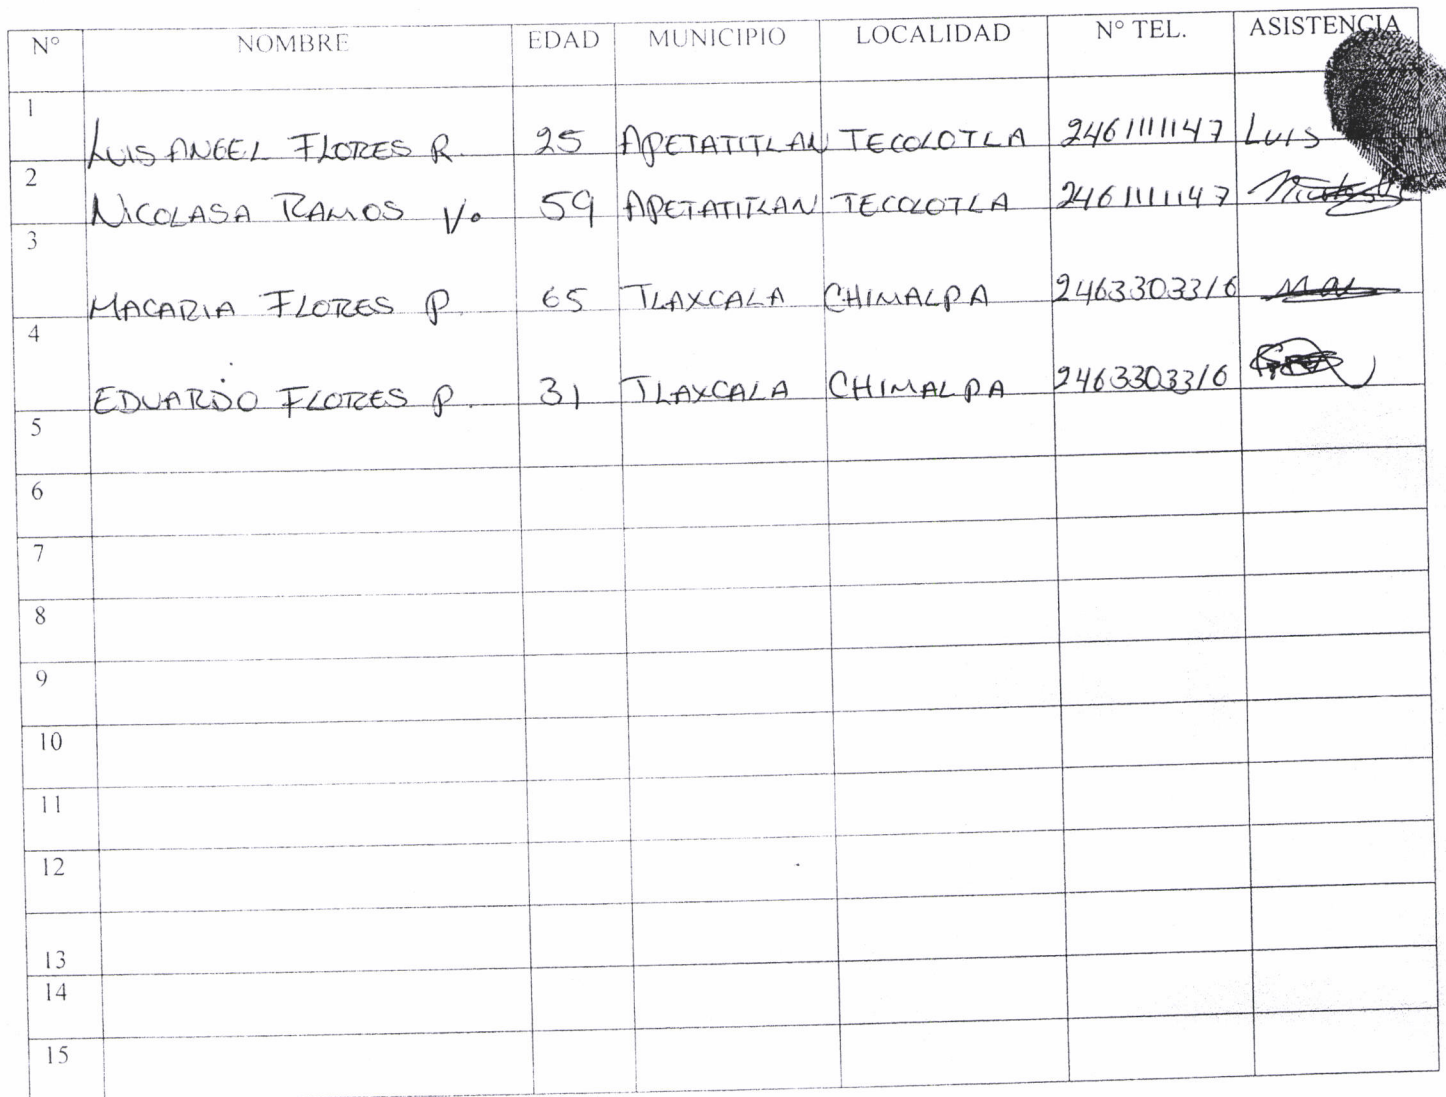 N° NOMBRE EDAD MUNICIPIO LOCALIDAD N° TEL. ASISTENCIA
1 LUIS ANGEL FLORES R. 25 APETATITLAN TECOLOTLA 2461111147 LUIS
2 NICOLASA RAMOS V. 59 APETATITLAN TECOLOTLA 2461111147
3 MACARIA FLORES P. 65 TLAXCALA CHIMALPA 2463303316
4 EDUARDO FLORES P. 31 TLAXCALA CHIMALPA 2463303316
5
6
7
8
9
10
11
12
13
14
15